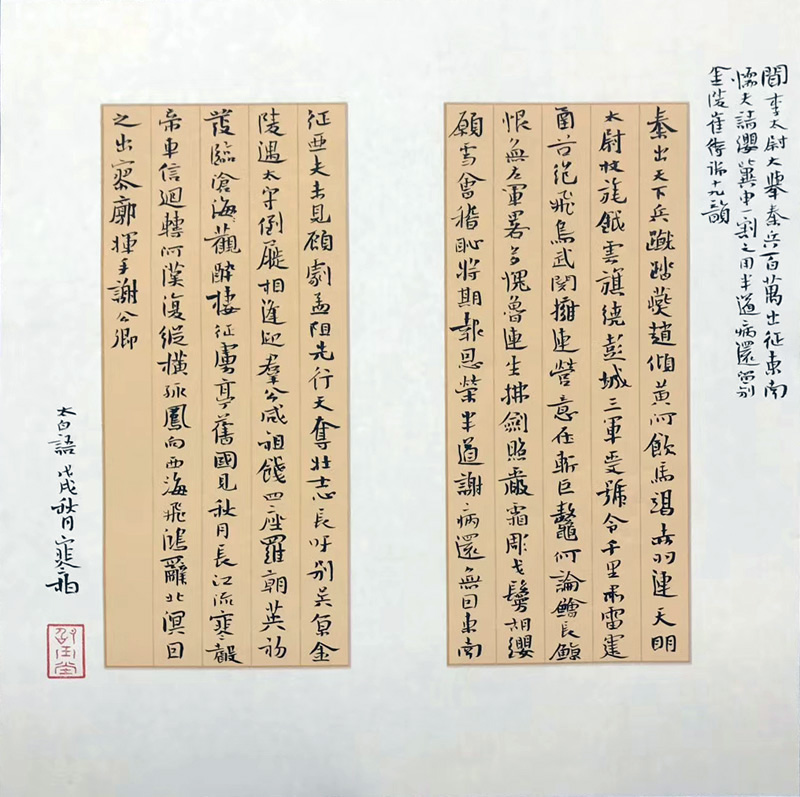 聞李太尉大舉秦兵百萬出征東南
懦夫請纓冀申一割之用半道病還留別
金陵崔侍御十九韻
秦出天下兵蹴踏燕趙傾黃河飲馬竭赤羽連天明
太尉杖旄鉞雲旗繞彭城三軍受號令千里肅雷霆
函谷絕飛鳥武関擁連營意在斬巨鼇何論鱠長鯨
恨無左軍畧多愧魯連生拂劍照嚴霜彫戈鬘胡纓
願雪會稽恥將期報恩榮半道謝病還無因東南
征亞夫未見顧劇孟阻先行天奪壯志長吁別吳京金
陵遇太守倒屣相逢迎羣公咸祖餞四座羅朝英初
發臨滄海觀醉棲征虜亭舊國見秋月長江流寒聲
帝車信迴轉河漢復縱橫孤鳳向西海飛鴻辭北溟因
之出寥廓揮手謝公卿
太白語 戊戌秋月寒